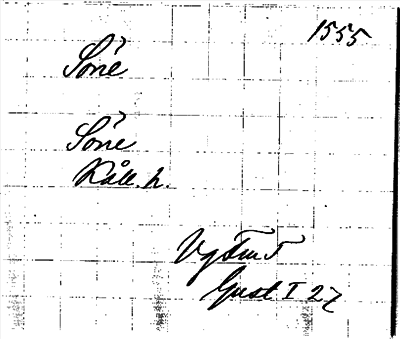 1555
Sone
Sone
Kåll. h.
Vg Fm 5
Gust I 27